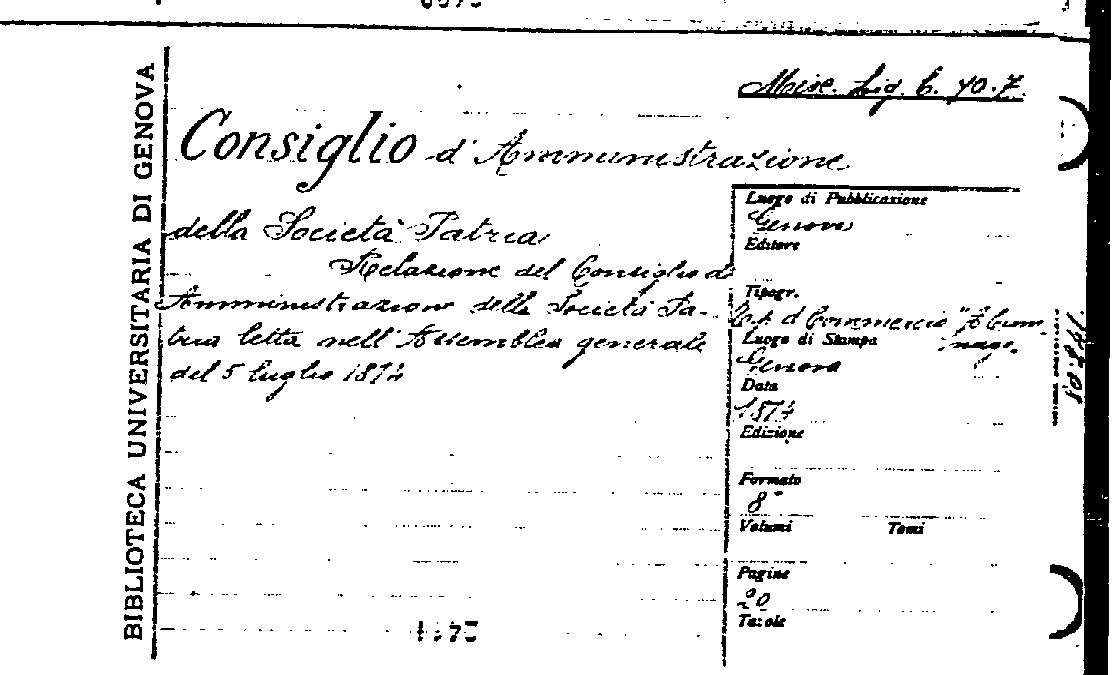 BIBLIOTECA UNIVERSITARIA DI GENOVA
Misc. Lig. b. 40.7.
Consiglio d'Amministrazione
della Società Patria
Relazione del Consiglio di
Amministrazione della Società Pa-
tria letta nell'Assemblea generale
del 5 luglio 1874
Luogo di Pubblicazione
Genova
Editore
Tipogr.
d Commercio
Luogo di Stampa
Genova
Data
1874
Edizione
Formato
8°
Volumi Tomi
Pagine
20
Tavole